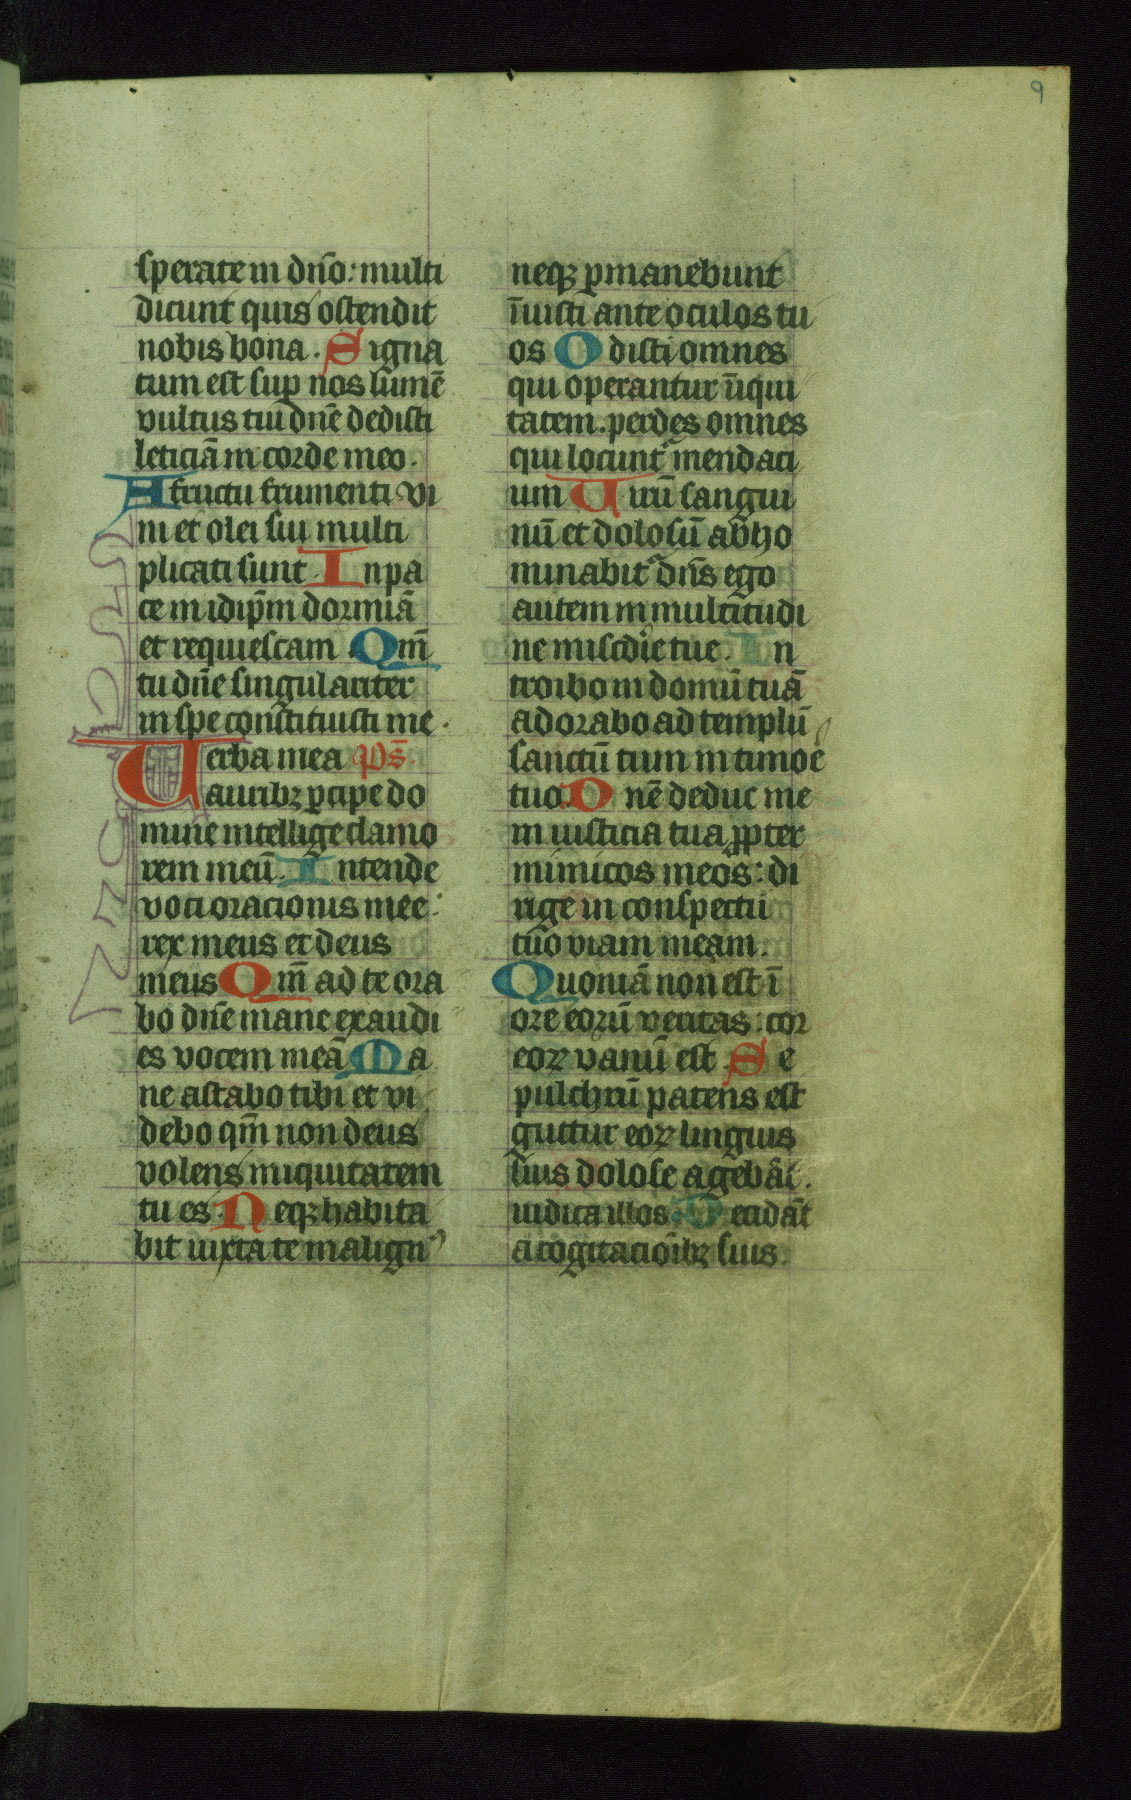 9
sperate in dn̄o: multi
dicunt quis ostendit
nobis bona. Signa
tum est sup nos lumē
vultus tui dn̄e dedisti
leticiā in corde meo.
A fructu frumenti vi
ni et olei sui multi
plicati sunt. In pa
ce in idip̄m dormiā
et requiescam. Qm̄
tu dn̄e singulariter
in spe constituisti me.
Verba mea ps̄.
auribꝫ ꝑcipe do
mine intellige clamo
rem meū. Intende
voci oracionis mee:
rex meus et deus
meus Qm̄ ad te ora
bo dn̄e mane exaudi
es vocem meā Ma
ne astabo tibi et vi
debo qm̄ non deus
volens iniquitatem
tu es. Neqꝫ habita
bit iuxta te malignꝰ
neqꝫ ꝑmanebunt
īiusti ante oculos tu
os Odisti omnes
qui operantur īiqui
tatem. perdes omnes
qui locunt᷑ mendaci
um Virū sangui
nū et dolosū abho
minabit᷑ dn̄s ego
autem in multitudi
ne mis̄c̄die tue. In
troibo in domū tuā
adorabo ad templū
sanctū tuum in timoē
tuo. Dn̄e deduc me
in iusticia tua ꝓpter
inimicos meos: di
rige in conspectu
tuo viam meam.
Quoniā non est ī
ore eorū veritas: cor
eoꝝ vanū est. Se
pulchrū patens est
guttur eoꝝ linguis
suis dolose agebāt.
iudica illos. Decidāt
a cogitacioībꝫ suis.